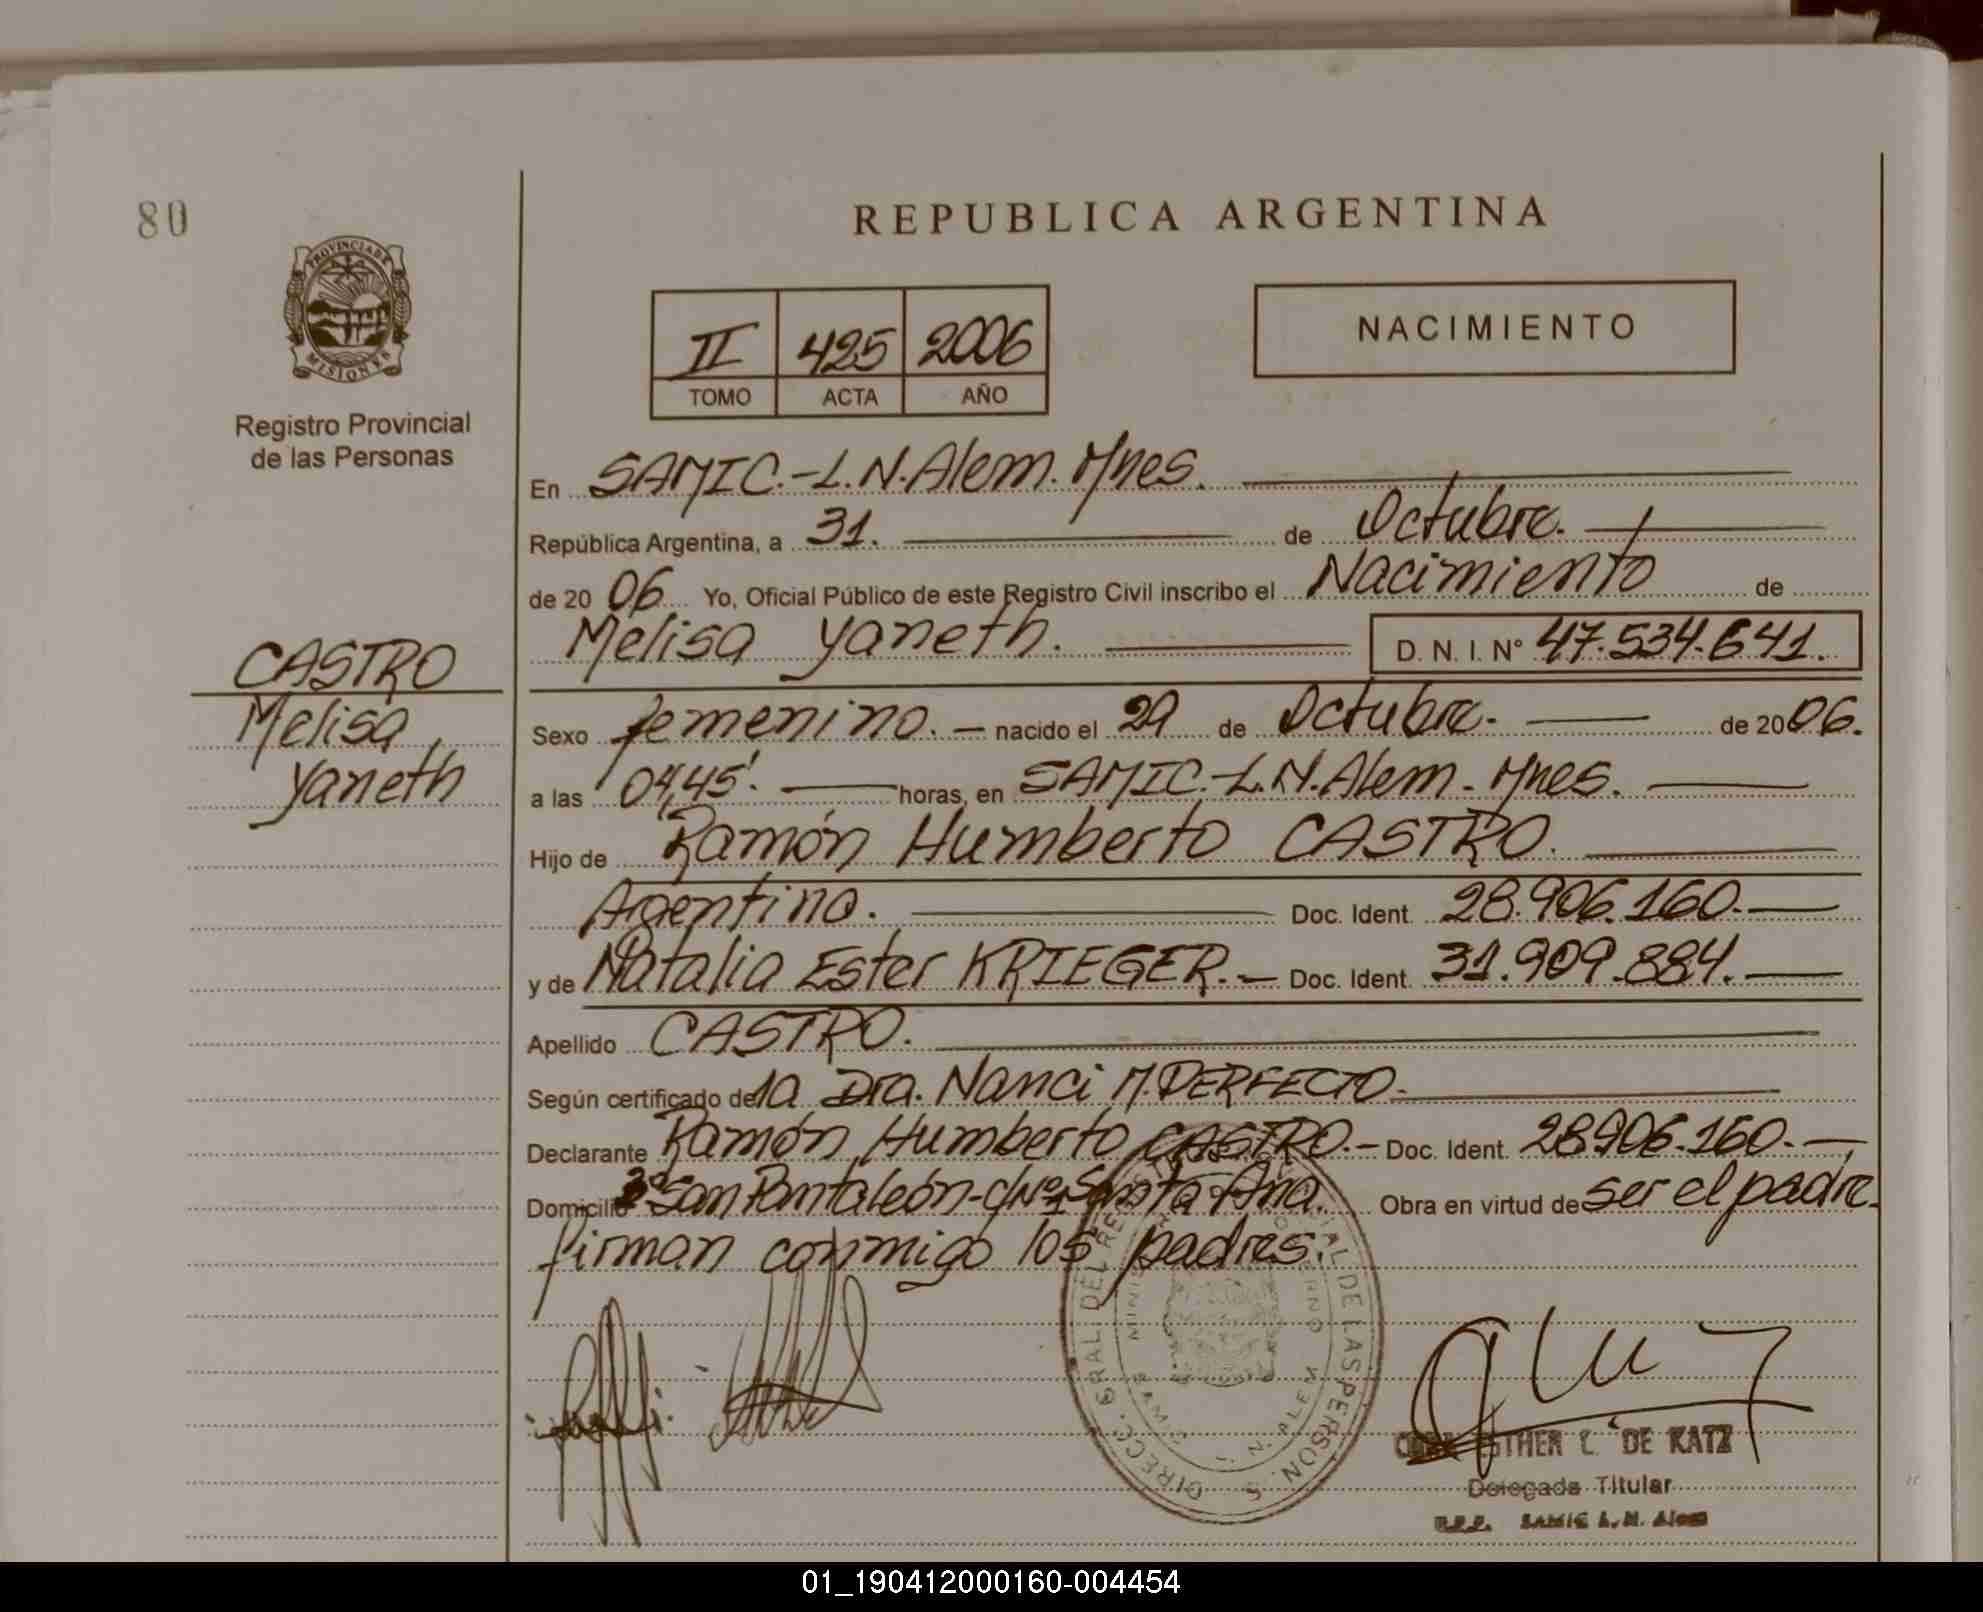 80
PROVINCIA DE
MISIONES
Registro Provincial
de las Personas
CASTRO
Melisa
Yaneth
REPUBLICA ARGENTINA
II 425 2006
TOMO ACTA AÑO
NACIMIENTO
En SAMIC.-L.N.Alem. Mnes.
República Argentina, a 31. de Octubre.
de 2006 Yo, Oficial Público de este Registro Civil inscribo el Nacimiento de
Melisa Yaneth. D. N. I. Nº 47.534.641.
Sexo femenino. - nacido el 29 de Octubre. de 2006.
a las 04,45'. horas, en SAMIC.-L.N.Alem. Mnes.
Hijo de Ramón Humberto CASTRO.
Argentino. Doc. Ident. 28.906.160.
y de Natalia Ester KRIEGER. - Doc. Ident. 31.909.884.
Apellido CASTRO.
Según certificado de la Dra. Nanci M. PERFECTO.
Declarante Ramón Humberto CASTRO.- Doc. Ident. 28.906.160.
Domicilio San Pantaleón- Santa Ana. Obra en virtud de ser el padre.
firman conmigo los padres.
DIRECC. GRAL. DEL REG. DE LAS PERSON.
L. N. ALEM
ESTHER L. DE KATZ
Delegada Titular
SAMIC L. N. Alem
01_190412000160-004454